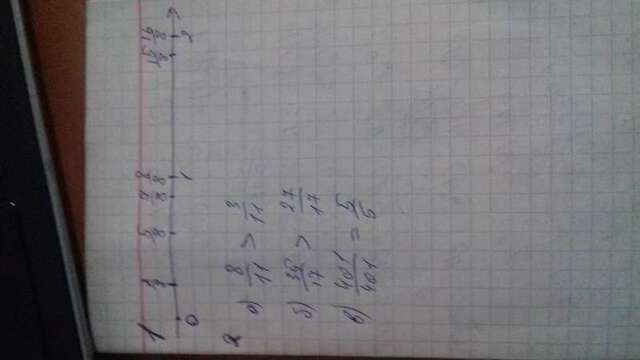 1 2/8 5/8 7/8 8/8 15/8 16/8
0 1 2
2
а) 8/11 > 3/11
б) 35/17 > 27/17
в) 401/401 = 5/5